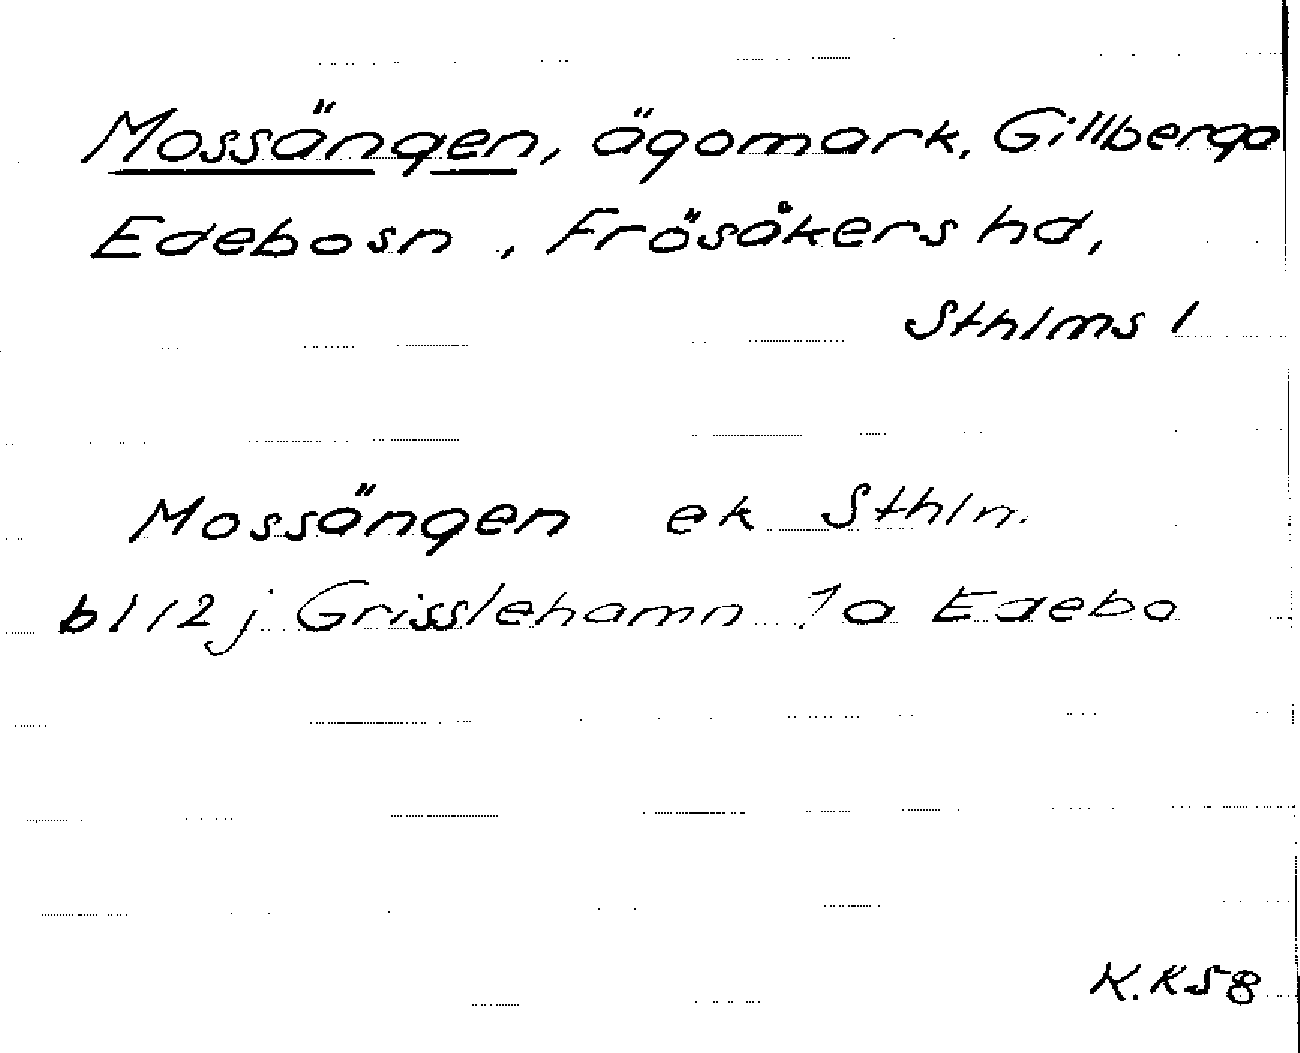 Mossängen, ägomark, Gillberga
Edebosn, Frösåkers hd,
Sthlms l
Mossängen ek Sthlm.
bl 12 j Grisslehamn 1a Edebo
K.K58